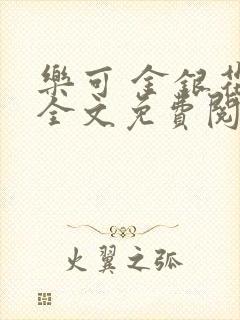 樂可 金銀花
全文免費閱
火翼之弧